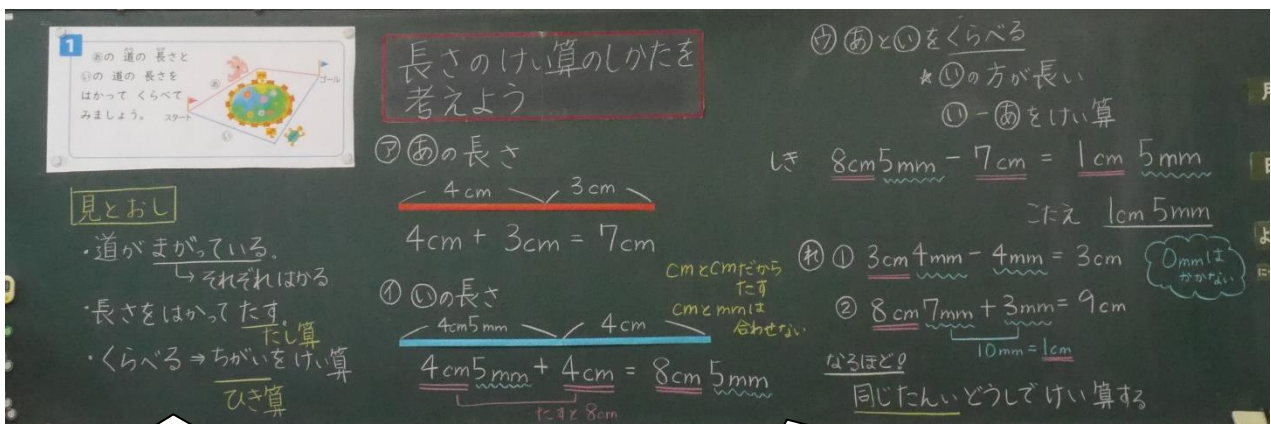 1
あの 道の 長さと
いの 道の 長さを
はかって くらべて
みましょう。
スタート
ゴール
あ
い
見とおし
・道がまがっている。
↳それぞれはかる
・長さをはかってたす。
たし算
・くらべる⇒ちがいをけい算
ひき算
長さのけい算のしかたを
考えよう
㋐ あの長さ
4cm 3cm
4cm + 3cm = 7cm
㋑ いの長さ
4cm5mm 4cm
4cm5mm + 4cm = 8cm5mm
たすと8cm
cmとcmだから
たす
cmとmmは
合わせない
㋒ あといをくらべる
★いの方が長い
い－あをけい算
しき 8cm5mm － 7cm = 1cm 5mm
こたえ 1cm5mm
れ ① 3cm4mm － 4mm = 3cm
0mmは
かかない
② 8cm7mm + 3mm = 9cm
10mm=1cm
なるほど!
同じたんいどうしでけい算する
月
日